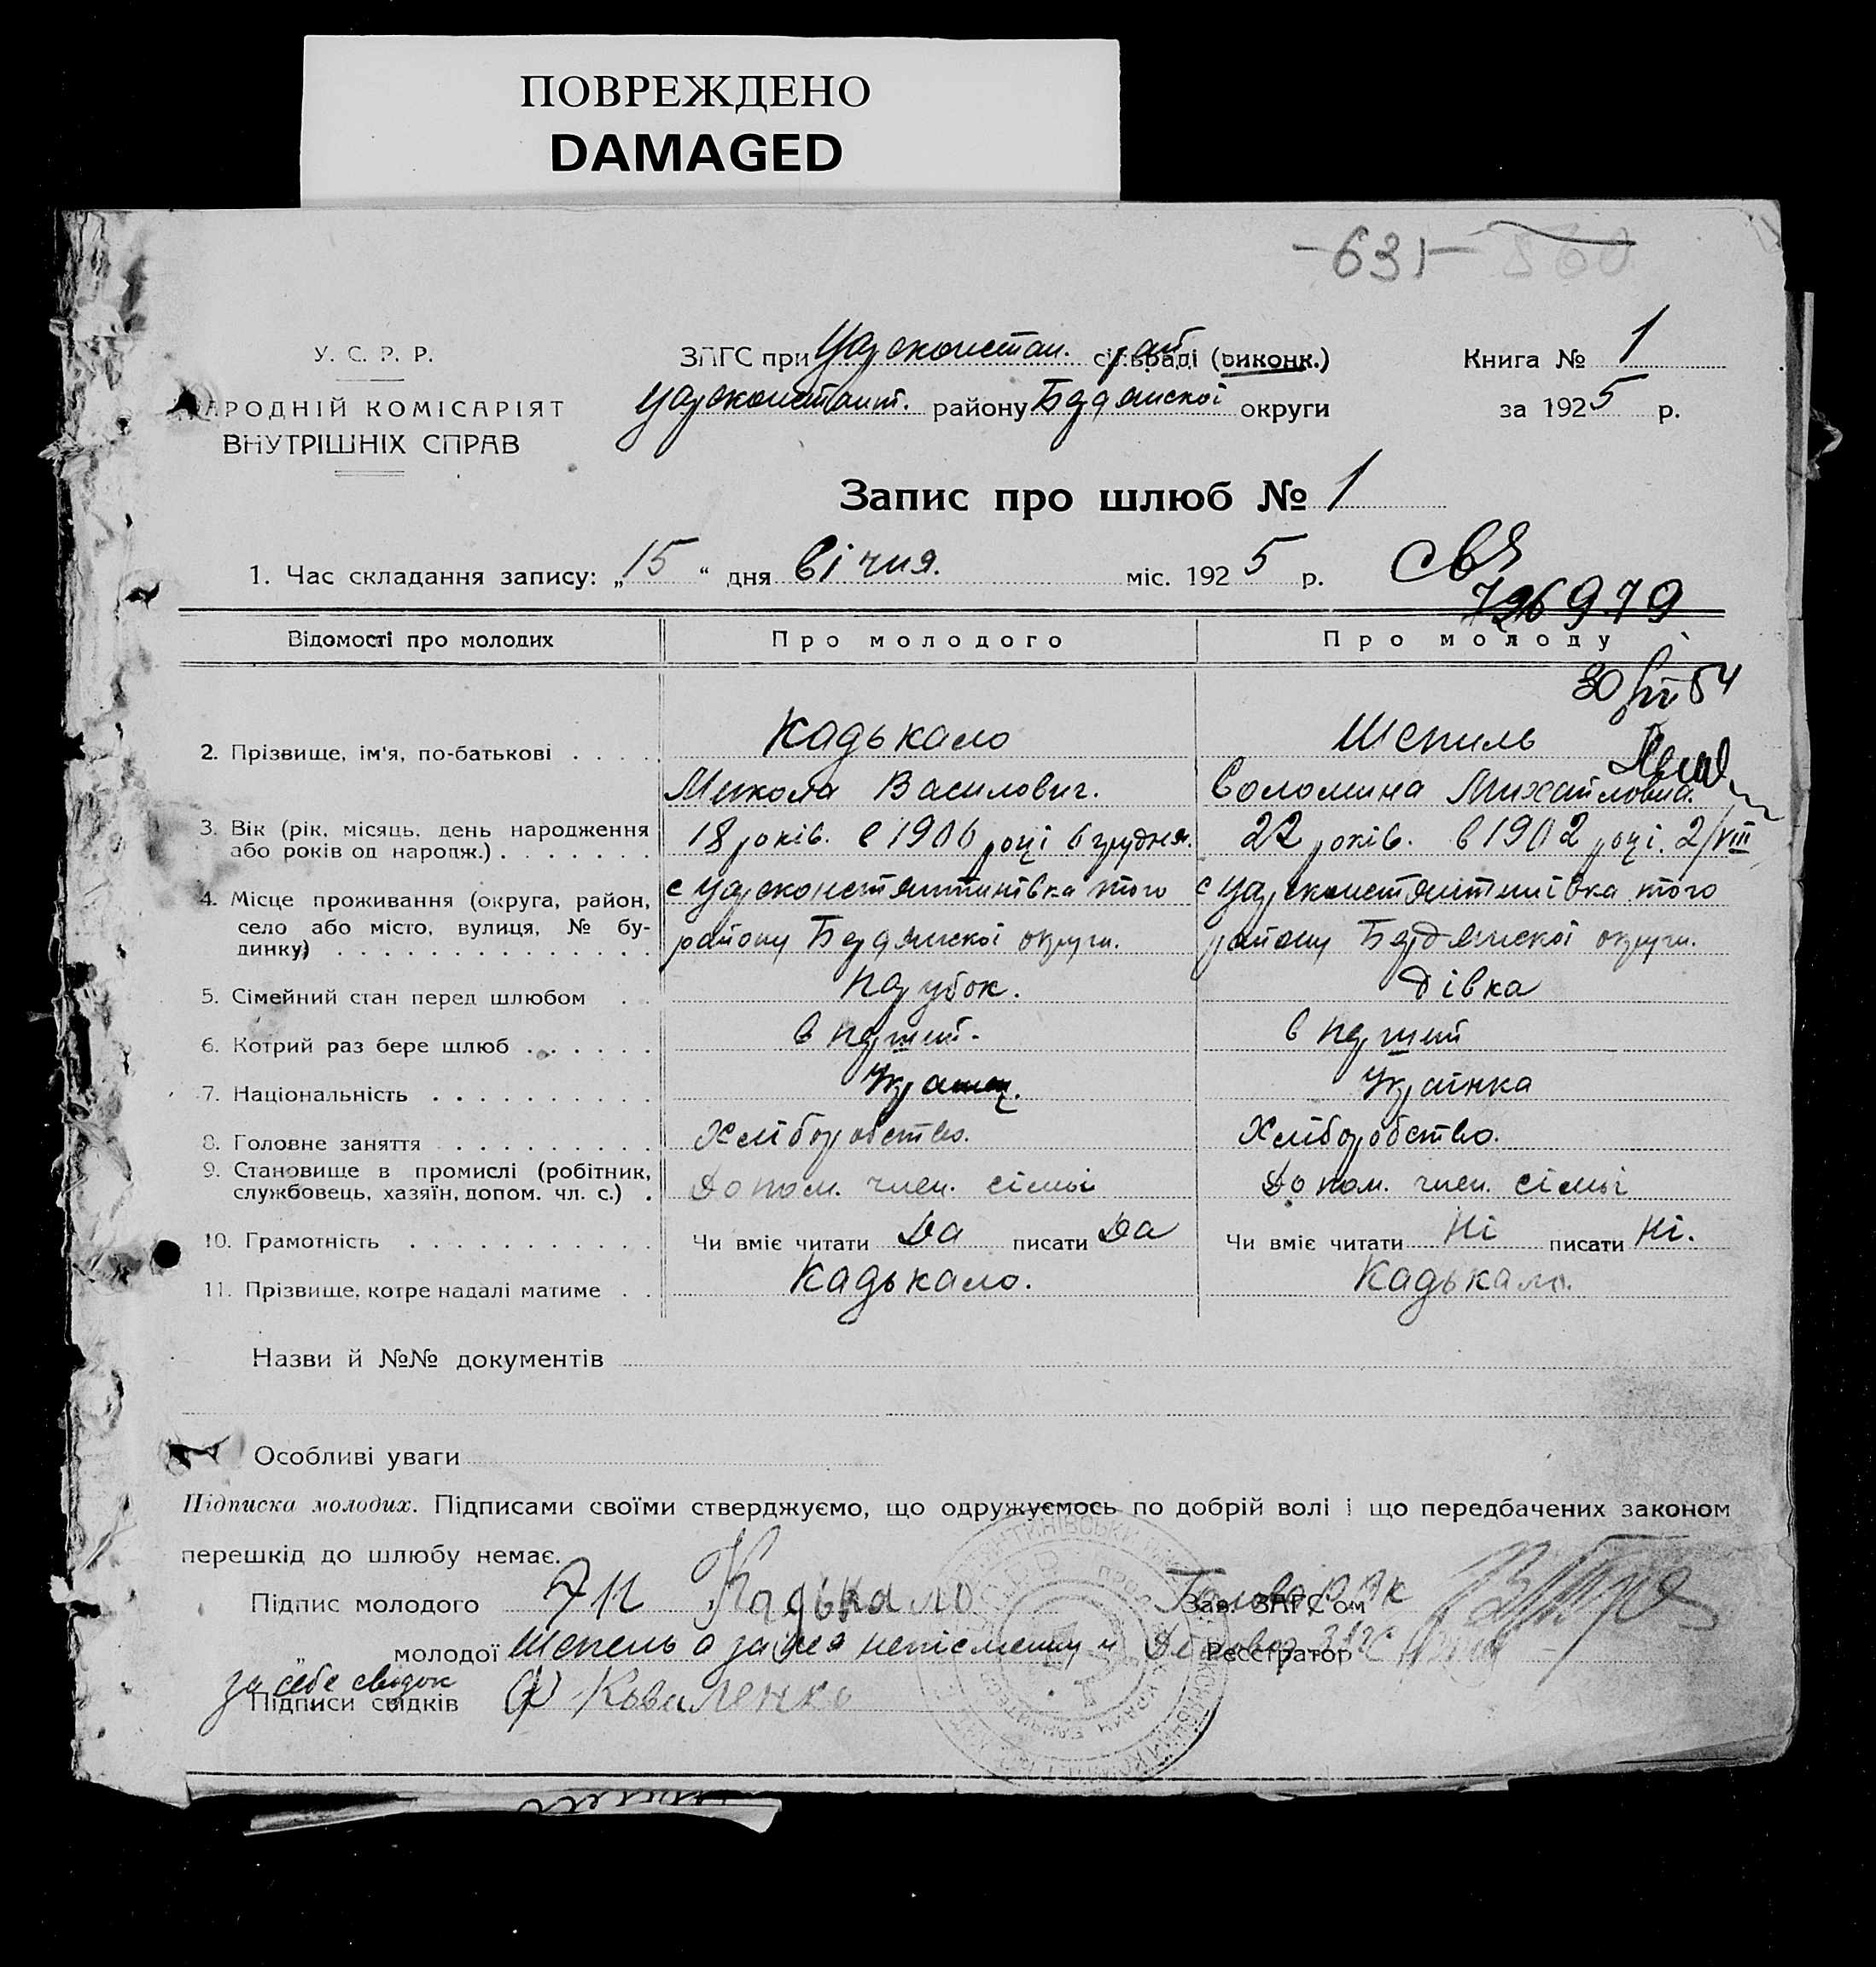 ПОВРЕЖДЕНО
DAMAGED
-631- 560
У. С. Р. Р.
НАРОДНІЙ КОМІСАРІЯТ
ВНУТРІШНІХ СПРАВ
ЗПГС при Цареконстан. рай. сільраді (виконк.)
Цареконстант. району Бердянскоі округи
Книга № 1
за 1925 р.
Запис про шлюб № 1
1. Час складання запису: „15“ дня січня. міс. 1925 р.
726979
Відомості про молодих Про молодого Про молоду
30/VII 54
2. Прізвище, ім'я, по-батькові . . . . Кадькало Шепиль
Микола Василович. Соломина Михайловна.
3. Вік (рік, місяць, день народження або років од народж.) . . . . . . . 18 років. в 1906 році 6 грудня. 22 років. в 1902 році. 2/VIII
4. Місце проживання (округа, район, село або місто, вулиця, № будинку) . . . . . . . . . . . . . . с Цареконстянтинівка того с Цареконстянтинівка того
району Бердянскоі округи. району Бердянскоі округи.
5. Сімейний стан перед шлюбом . . Парубок. дівка
6. Котрий раз бере шлюб . . . . . . в перший. в перший
7. Національність . . . . . . . . . . Україн. Українка
8. Головне заняття . . . . . . . . . Хліборобство. Хліборобство.
9. Становище в промислі (робітник, службовець, хазяїн, допом. чл. с.) . Допом. член. сімьі Допом. член. сімьі
10. Грамотність . . . . . . . . . . . Чи вміє читати Да писати Да Чи вміє читати Ні писати Ні.
11. Прізвище, котре надалі матиме . . Кадькало. Кадькало.
Назви й №№ документів
Особливі уваги
Підписка молодих. Підписами своїми стверджуємо, що одружуємось по добрій волі і що передбачених законом
перешкід до шлюбу немає.
Підпис молодого Кадькало Голова РВК Зав. ЗАГС'ом
молодої Шепель а за нея неписменну Реєстратор
за себе свидок
Підписи свідків Ф Коваленко